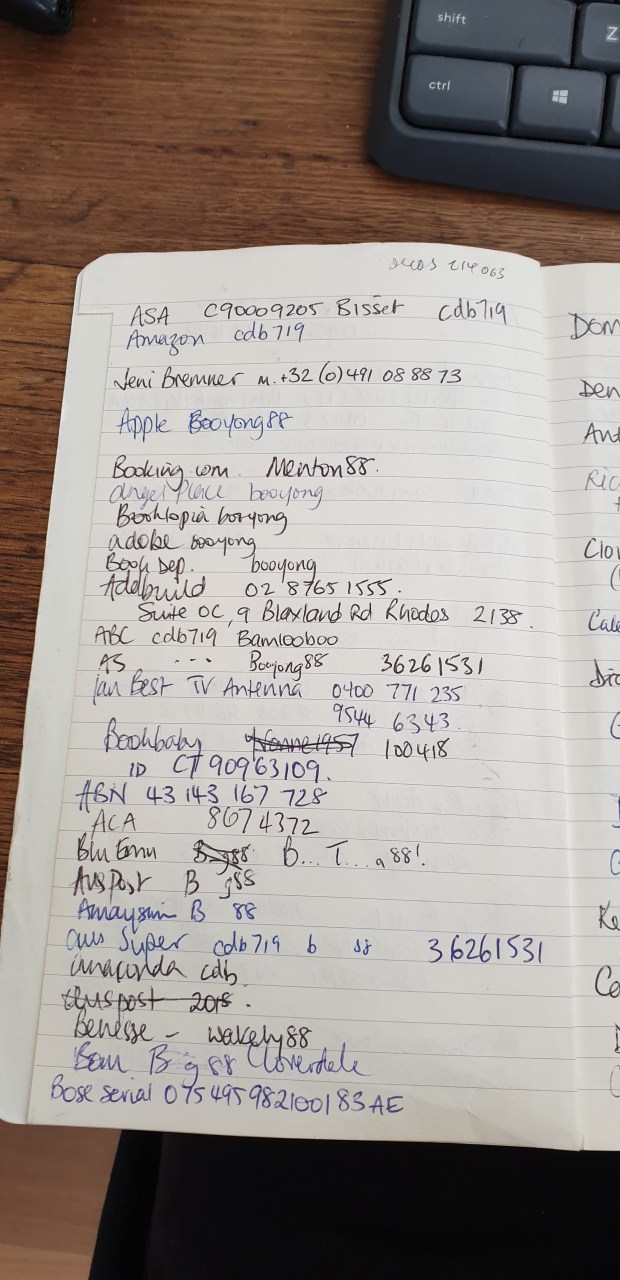 shift
Z
ctrl
ASA C90009205 Bisset cdb719
Amazon cdb719
Jeni Bremner m. +32 (0) 491 08 88 73
Apple Booyong88
Booking com. Menton88.
angel Place booyong
Booktopia booyong
adobe booyong
Book Dep. booyong
Addbuild 02 8765 1555.
Suite 0C, 9 Blaxland Rd Rhodes 2138.
ABC cdb719 Bamlooboo
AS ... Booyong88 36261531
Ian Best TV Antenna 0400 771 235
9544 6343
Bookbaby 100418
ID CT90963109.
ABN 43 143 167 728
ACA 8674372
Blu Emu B... T... a88!
Aus Post B g88
Amaysim B 88
Aus Super cdb719 b 88 36261531
anaconda cdb
Auspost 2018.
Benesse - wakely88
Bom B g88 Cloverdale
Bose serial 075495982100183AE
Dom
Den
Ant
Ric
Clov
Cale
Ke
Co